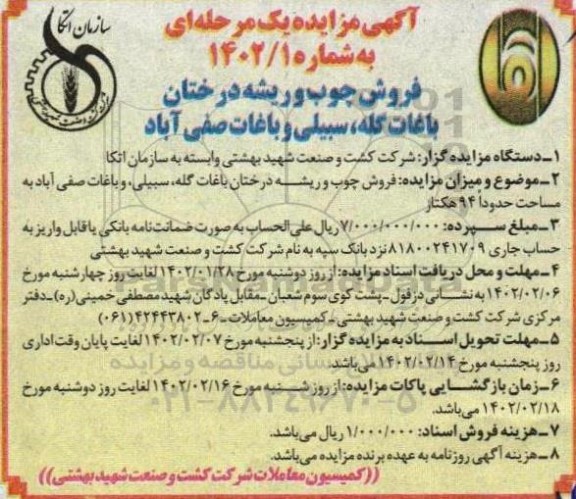 سازمان اتکا
آگهی مزایده یک مرحله‌ای
به شماره ۱۴۰۲/۱
فروش چوب و ریشه درختان
باغات گله، سبیلی و باغات صفی آباد
۱ـ دستگاه مزایده گزار: شرکت کشت و صنعت شهید بهشتی وابسته به سازمان اتکا
۲ـ موضوع و میزان مزایده: فروش چوب و ریشه درختان باغات گله، سبیلی، و باغات صفی آباد به
مساحت حدوداً ۹۴ هکتار
۳ـ مبلغ سپرده: ۷/۰۰۰/۰۰۰/۰۰۰ ریال علی الحساب به صورت ضمانت‌نامه بانکی یا قابل واریز به
حساب جاری ۸۱۸۰۰۲۴۱۷۰۹ نزد بانک سپه به نام شرکت کشت و صنعت شهید بهشتی
۴ـ مهلت و محل دریافت اسناد مزایده: از روز دوشنبه مورخ ۱۴۰۲/۰۱/۲۸ لغایت روز چهارشنبه مورخ
۱۴۰۲/۰۲/۰۶ به نشانی دزفول ـ پشت کوی سوم شعبان ـ مقابل پادگان شهید مصطفی خمینی(ره) ـ دفتر
مرکزی شرکت کشت و صنعت شهید بهشتی ـ کمیسیون معاملات ۶ـ۴۲۴۴۳۸۰۲(۰۶۱)
۵ـ مهلت تحویل اسناد به مزایده گزار: از پنجشنبه مورخ ۱۴۰۲/۰۲/۰۷ لغایت پایان وقت اداری
روز پنجشنبه مورخ ۱۴۰۲/۰۲/۱۴ می‌باشد.
۶ـ زمان بازگشایی پاکات مزایده: از روز شنبه مورخ ۱۴۰۲/۰۲/۱۶ لغایت روز دوشنبه مورخ
۱۴۰۲/۰۲/۱۸ می‌باشد.
۷ـ هزینه فروش اسناد: ۱/۰۰۰/۰۰۰ ریال می‌باشد.
۸ـ هزینه آگهی روزنامه به عهده برنده مزایده می‌باشد.
((کمیسیون معاملات شرکت کشت و صنعت شهید بهشتی))
ParsNamadData
۰۲۱-۸۸۳۴۹۶۷۰-۵